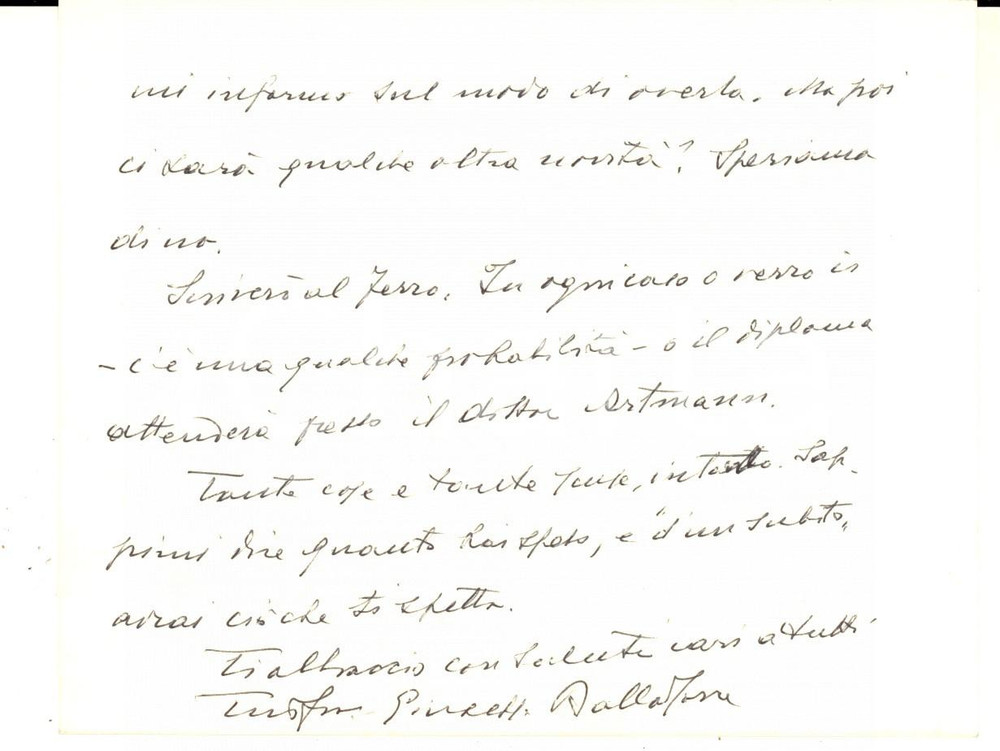 mi informo sul modo di averla. Ma poi
ci sarà qualche altra novità? Speriamo
di no.
Scriverò al Ferro. In ogni caso o verrò io
- c'è una qualche probabilità - o il diploma
attenderà presso il dottor Artmann.
Tante cose e tante scuse, intanto. Sap-
pimi dire quanto hai speso, e "d'un subito"
avrai ciò che ti spetta.
Ti abbraccio con saluti cari a tutti
Giuseppe Dalla Torre